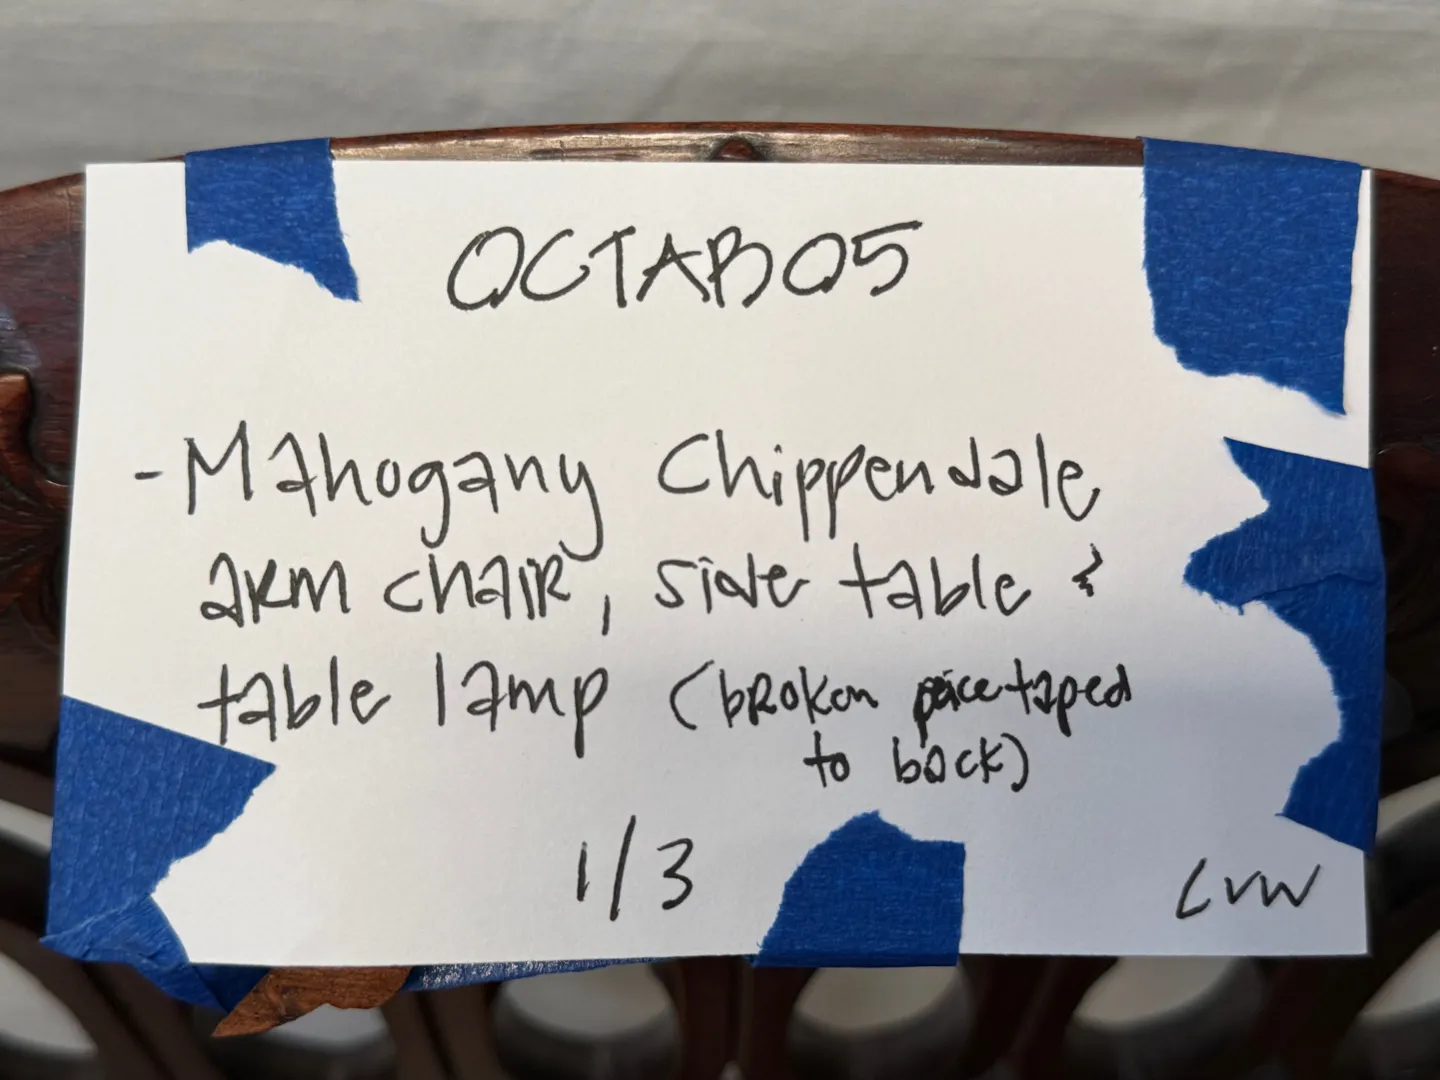 OCTAB05
- Mahogany Chippendale
arm chair, side table &
table lamp (broken peice taped
to back)
1/3
LVW